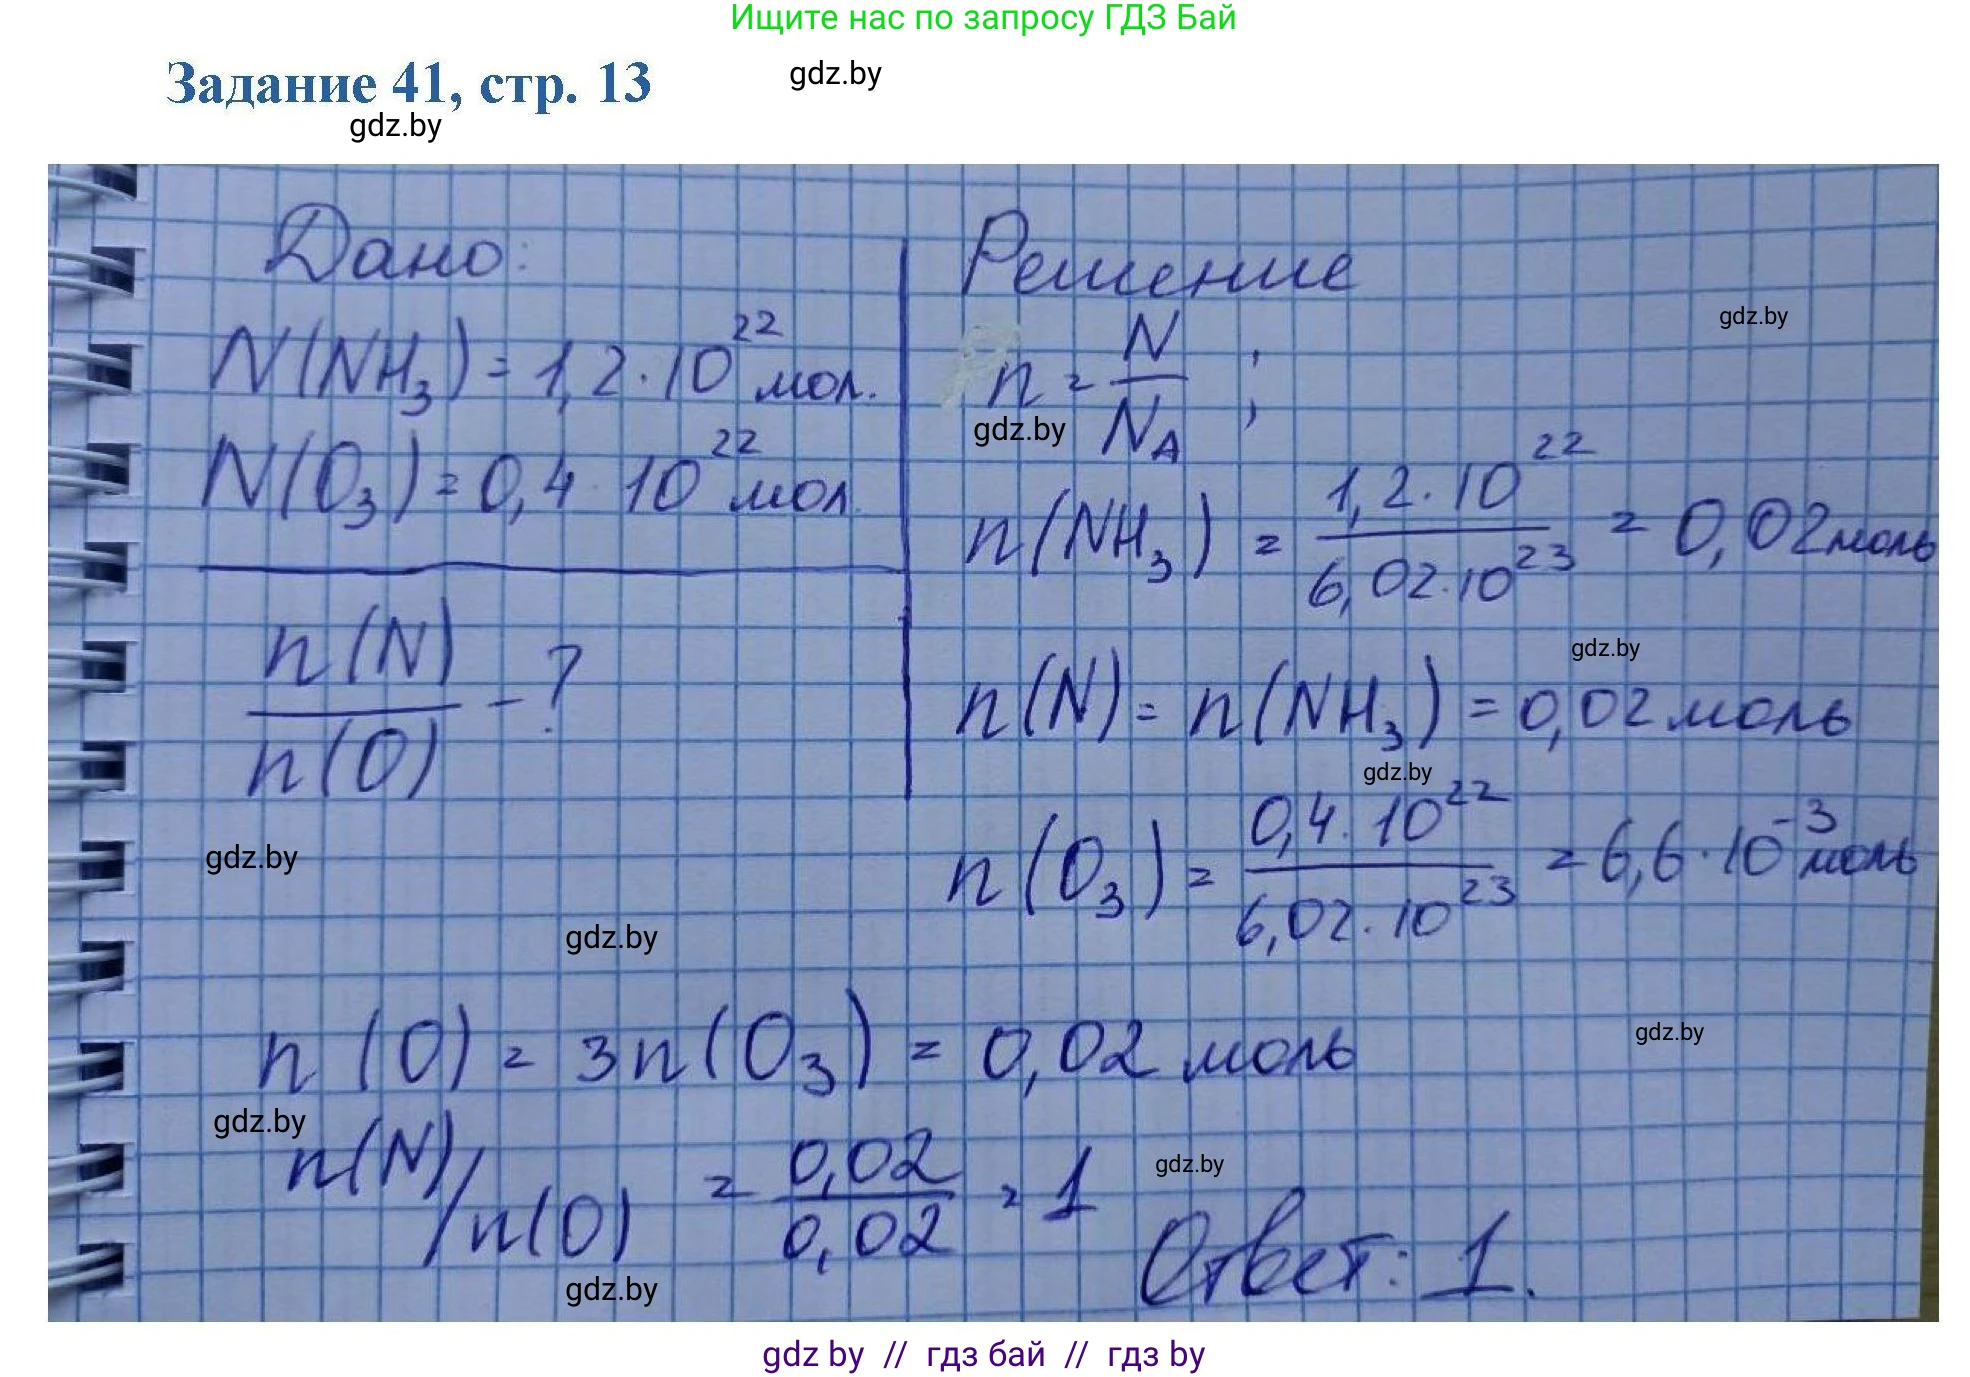 Ищите нас по запросу ГДЗ Бай
Задание 41, стр. 13
gdz.by
gdz.by
Дано:
N(NH₃) = 1,2 · 10²² мол.
N(O₃) = 0,4 · 10²² мол.
n(N) / n(O) - ?
Решение
gdz.by
n = N / N_A ;
gdz.by
n(NH₃) = 1,2 · 10²² / 6,02 · 10²³ = 0,02 моль
gdz.by
n(N) = n(NH₃) = 0,02 моль
gdz.by
n(O₃) = 0,4 · 10²² / 6,02 · 10²³ = 6,6 · 10⁻³ моль
gdz.by
gdz.by
n(O) = 3n(O₃) = 0,02 моль
gdz.by
gdz.by
n(N) / n(O) = 0,02 / 0,02 = 1
gdz.by
Ответ: 1.
gdz.by
gdz by // гдз бай // гдз by